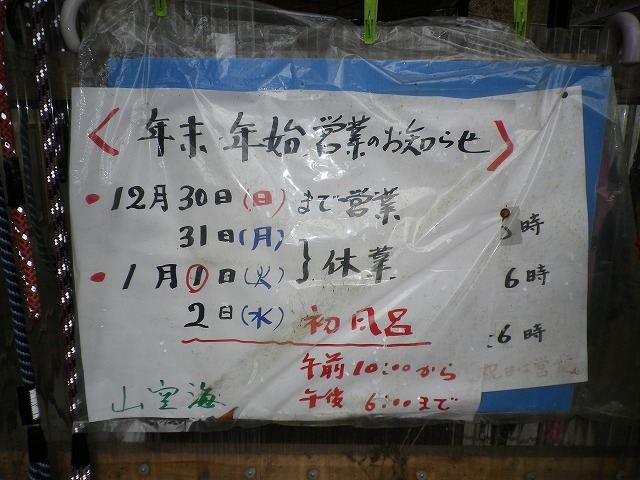 〈年末年始営業のお知らせ〉
・12月30日(日)まで営業
31日(月)
・1月1日(火)}休業
2日(水) 初風呂
午前10:00から
午後6:00まで
山空海
時
6時
:6時
祝日は営業